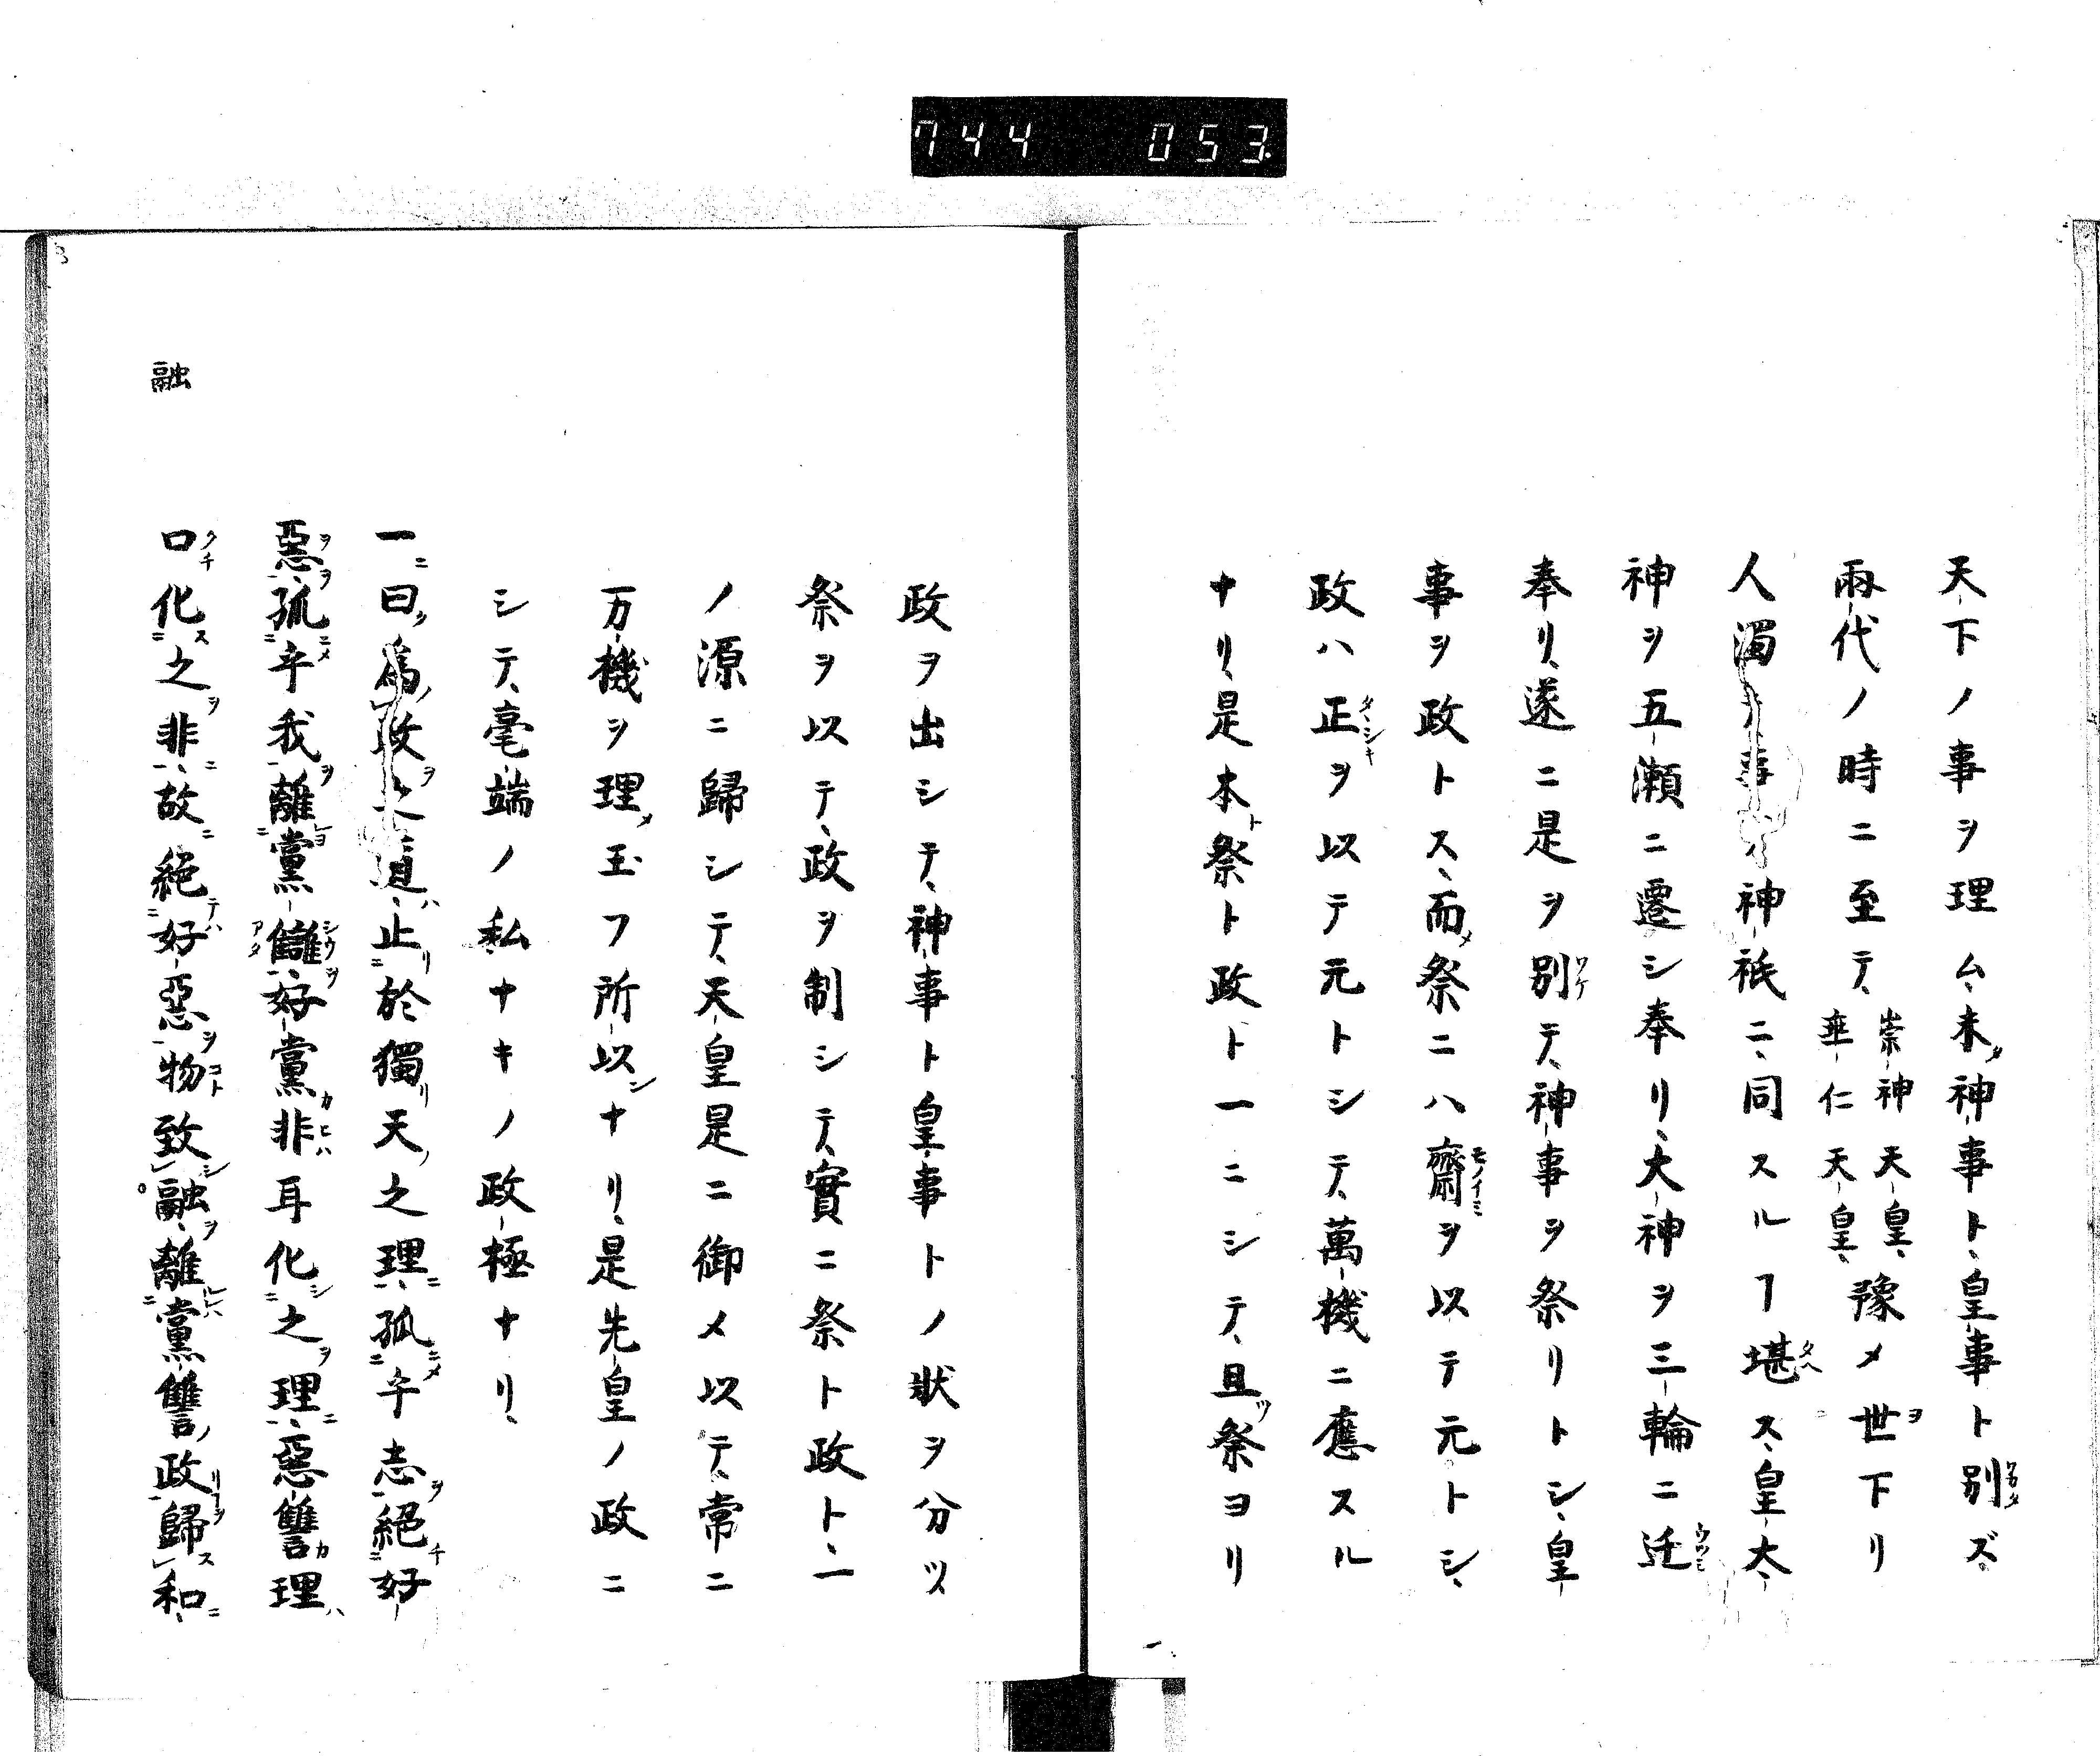 744 053
天下ノ事ヲ理ム、未神事ト、皇事ト別ズ
兩代ノ時ニ至テ、崇神天皇、垂仁天皇、豫メ世下リ
人濁 事 神祇ニ、同スルヿ堪ス、皇太
神ヲ五瀬ニ遷シ奉リ、大神ヲ三輪ニ迁
奉リ、遂ニ是ヲ別テ、神事ヲ祭リトシ、皇
事ヲ政トス、而祭ニハ齋ヲ以テ元トシ、
政ハ正ヲ以テ元トシテ、萬機ニ應スル
ナリ、是本祭ト政ト一ニシテ、且祭ヨリ
政ヲ出シテ、神事ト皇事トノ狀ヲ分ツ、
祭ヲ以テ、政ヲ制シテ、實ニ祭ト政ト、一
ノ源ニ歸シテ、天皇是ニ御メ以テ、常ニ
万機ヲ理玉フ所以ナリ、是先皇ノ政ニ
シテ、毫端ノ私ナキノ政極ナリ、
一曰爲政之道、止於獨天之理、孤乎志絕好
惡、孤乎我離黨讎、好黨非耳化之理、惡讐理
口化之非、故絕好惡物致融、離黨讐政歸和、
融